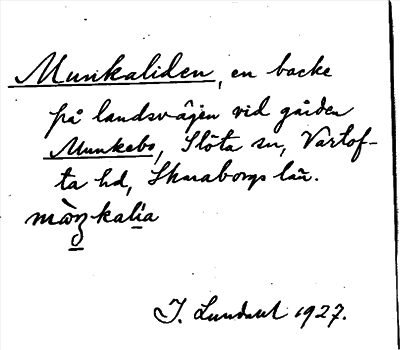 Munkaliden, en backe
på landsvägen vid gården
Munkebo, Slöta sn, Vartof-
ta hd, Skaraborgs län.
kalia
J. 1927.